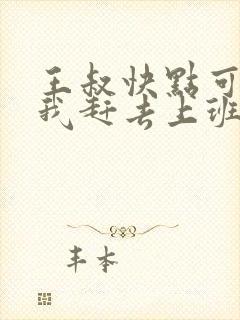 王叔快點可
我赶去上班
丰本